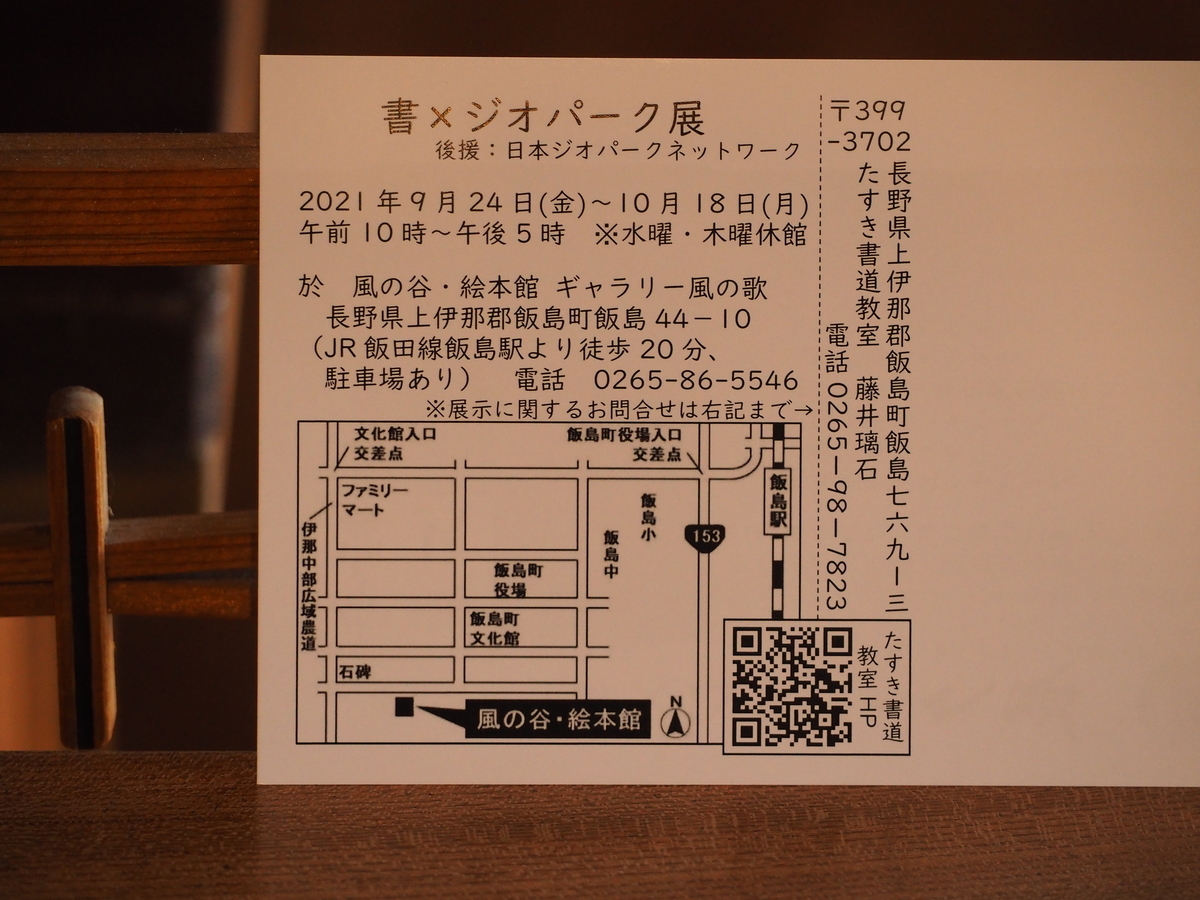 書×ジオパーク展
後援：日本ジオパークネットワーク
2021年9月24日(金)～10月18日(月)
午前10時～午後5時　※水曜・木曜休館
於　風の谷・絵本館 ギャラリー風の歌
長野県上伊那郡飯島町飯島44－10
（JR飯田線飯島駅より徒歩20分、
駐車場あり）　電話　0265-86-5546
※展示に関するお問合せは右記まで→
〒399
-3702
長野県上伊那郡飯島町飯島七六九ー三
たすき書道教室　藤井璃石
電話 0265－98－7823
文化館入口
交差点
飯島町役場入口
交差点
ファミリー
マート
伊那中部広域農道
飯島小
飯島中
153
飯島駅
飯島町
役場
飯島町
文化館
石碑
風の谷・絵本館
N
たすき書道
教室 HP